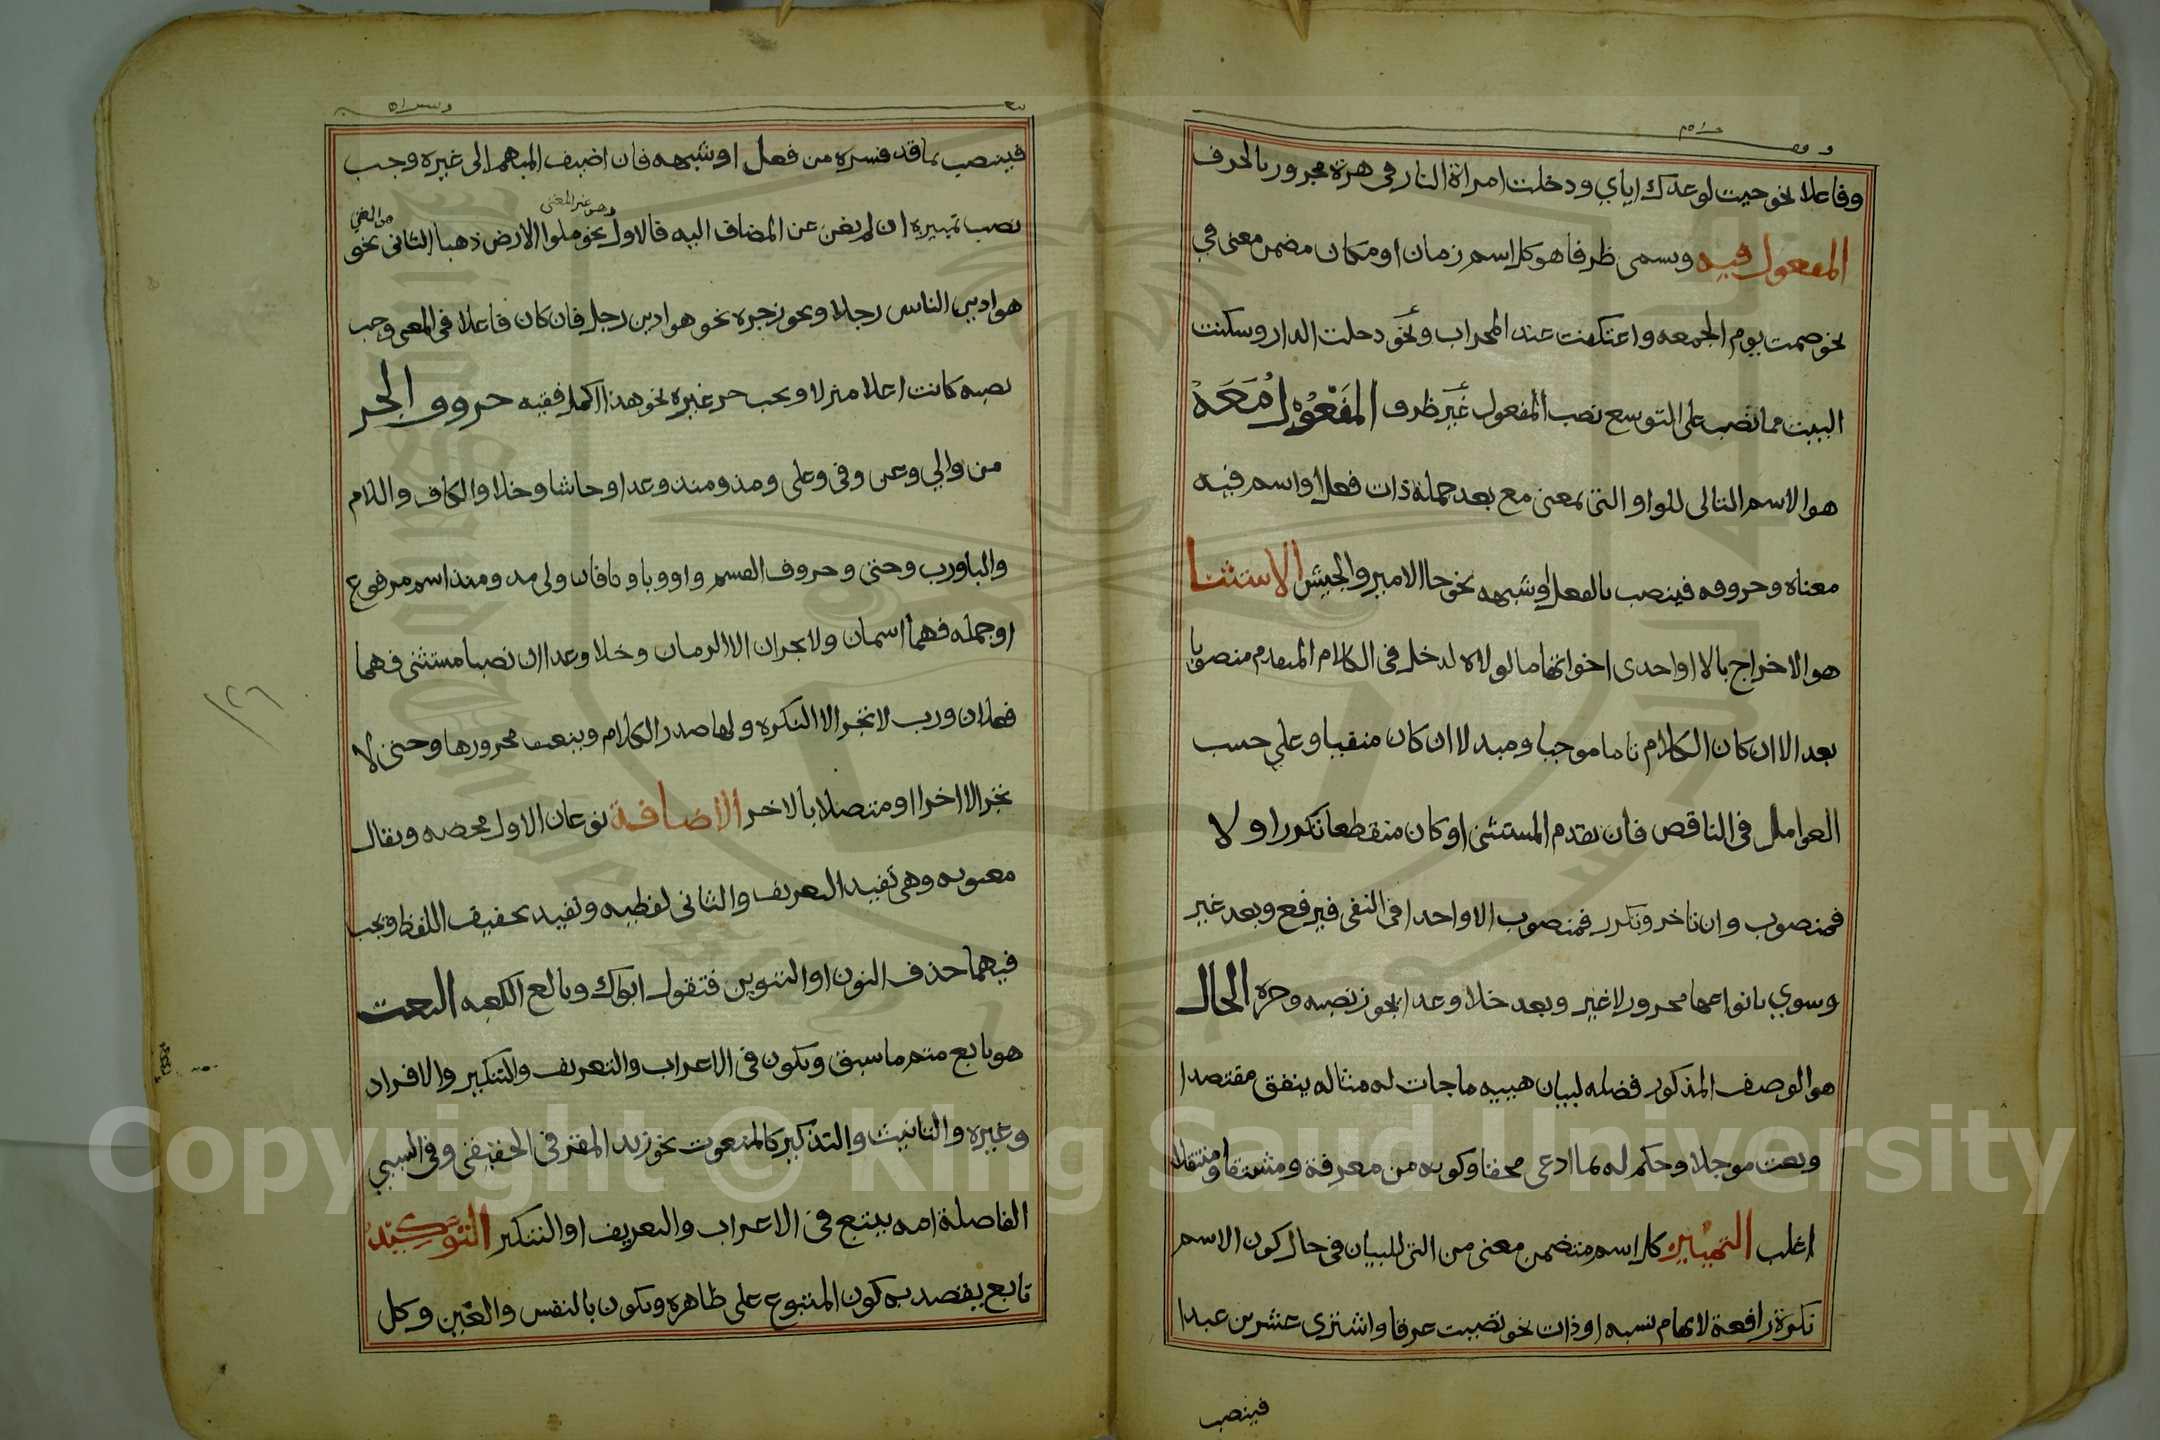 وفاعلا نحو حيت لوعدك اياي ودخلت امراة النار في هرة مجرور بالحرف
المفعول فيه ويسمى ظرفا هو كل اسم زمان او مكان مضمن معنى في
نحو صمت يوم الجمعه واعتكفت عند المحراب ونحو دخلت الدار وسكنت
البيت مما نصب على التوسع نصب المفعول غير ظرف المفعول معه
هو الاسم التالي للواو التي بمعنى مع بعد جملة ذات فعل او اسم فيه
معناه وحروفه فينصب بالفعل او شبهه نحو جا الامير والجيش الاستثنا
هو الاخراج بالا او احدى اخواتها ما لولاه لدخل في الكلام المتقدم منصوبا
بعد الا ان كان الكلام تاما موجبا ومبدلا ان كان منفيا وعلي حسب
العوامل في الناقص فان تقدم المستثنى او كان منقطعا تكرر او لا
فمنصوب وان تاخر وتكرر فمنصوب الا واحدا في النفي فيرفع وبعد غير
وسوي بانواعها مجرور لا غير وبعد خلا وعدا يجوز نصبه وجره الحال
هو الوصف المذكور فضله لبيان هييه ما جات له مثاله ينفق مقتصدا
وبعت موجلا وحكم له بما ادعى محقا وكونه من معرفة ومشتقا ومنتقلا
اغلب التمييز كل اسم متضمن معنى من التي للبيان في حال كون الاسم
نكرة رافعة لابهام نسبه او ذات نحو تصببت عرقا واشتري عشرين عبدا
فينصب
فينصب بما قد فسره من فعل او شبهه فان اضيف المبهم الى غيره وجب
نصب تمييزه ان لم يغن عن المضاف اليه فالاول نحو ملوا الارض ذهبا الثاني نحو
هو اديب الناس رجلا ويجوز جره نحو هو اديب رجل فان كان فاعلا في المعى وجب
نصبه كانت اعلا منزلا ويجب جر غيره نحو هذا اكمل فقيه حروف الجر
من والي وعن وفي وعلى ومذ ومنذ وعدا وحاشا وخلا والكاف واللام
والبا ورب وحتى وحروف القسم واو وبا وتا فان ولي مد ومنذ اسم مرفوع
او جمله فهما اسمان ولا يجران الا الزمان وخلا وعدا ان نصبا مستثنى فهما
فعلان ورب لا تجر الا النكره ولها صدر الكلام وينعت مجرورها وحتى لا
تجر الا اخرا او متصلا بالاخر الاضافة نوعان الاول محضه ويقال
معنويه وهي تفيد التعريف والثاني لفظيه وتفيد تخفيف اللفظ ويجب
فيهما حذف النون او التنوين فتقول ابواك وبالع الكعبه النعت
هو تابع متم ما سبق ويكون في الاعراب والتعريف والتنكير والافراد
وغيره والتانيث والتذكير كالمنعوت نحو زيد المقر في الحقيقي وفي السببي
الفاصلة امه يتبع في الاعراب والتعريف او التنكير التوكيد
تابع يقصد به كون المتبوع على ظاهره ويكون بالنفس والعين وكل
Copyright © King Saud University
1957